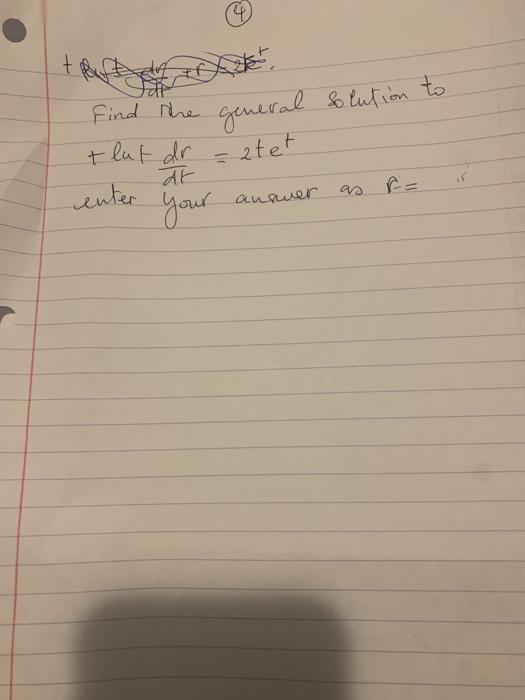 4
t ln t dr/dt + r = 2te^t.
Find the general solution to
t ln t dr/dt = 2te^t
enter your answer as r =